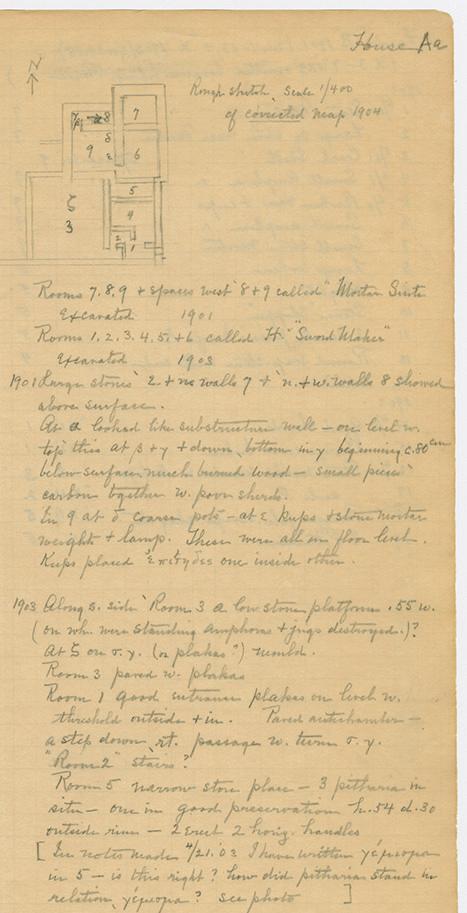 House Aa
N
Rough sketch, Scale 1/400
of corrected map 1904
7
8
δ
9
ε
6
5
ζ
3
4
2
1
Rooms 7, 8, 9 + spaces west 8 + 9 called "Mortar Suite
Excavated 1901
Rooms 1, 2, 3, 4, 5, + 6 called H. "Sword Maker"
Excavated 1903
1901 Large stones E. + n walls 7 + n. + w. walls 8 showed
above surface.
At α looked like substructure wall - on level w.
top this at β + γ + down, bottom in γ beginning c. 80 cm
below surface, much burned wood - small pieces
carbon together w. poor sherds.
In 9 at δ coarse pots - at ε kups + stone mortar
weights + lamp. These were all on floor level.
Kups placed ἐπίτηδες one inside other.
1903 Along s. side Room 3 a low stone platform .55 w.
(on wh. were standing amphoras + jugs destroyed.)?
At ζ on σ.γ. (or plakas?) moulds.
Room 3 paved w. plakas
Room 1 good entrance plakas on level w.
threshold outside + in. Paved antechamber -
a step down, rt. passage w. turn σ.γ.
"Room 2" stairs?
Room 5 narrow store place - 3 pitharia in
situ - one in good preservation h. 54 d. 30
outside rim - 2 erect 2 horiz. handles
[In notes made 4/21.'03 I have written γέμισμα
in 5 - is this right? how did pitharia stand in
relation, γέμισμα? see photo ]